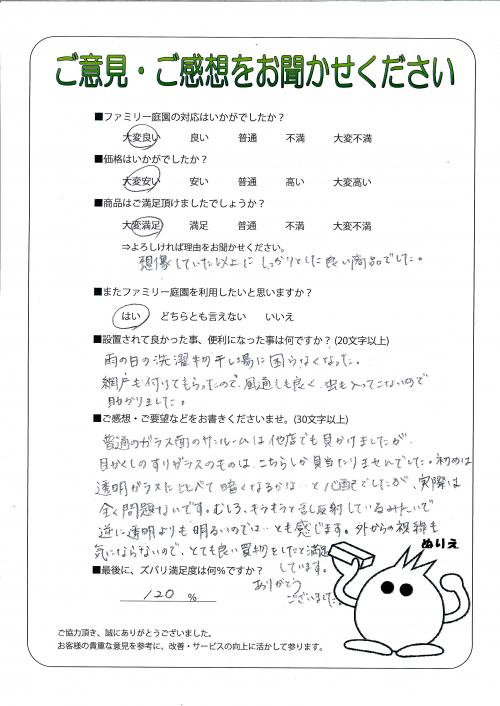 ご意見・ご感想をお聞かせください
■ファミリー庭園の対応はいかがでしたか？
大変良い 良い 普通 不満 大変不満
■価格はいかがでしたか？
大変安い 安い 普通 高い 大変高い
■商品はご満足頂けましたでしょうか？
大変満足 満足 普通 不満 大変不満
⇒よろしければ理由をお聞かせください。
想像していた以上にしっかりとした良い商品でした。
■またファミリー庭園を利用したいと思いますか？
はい どちらとも言えない いいえ
■設置されて良かった事、便利になった事は何ですか？(20文字以上)
雨の日の洗濯物干し場に困らなくなった。
網戸も付けてもらったので、風通しも良く、虫も入ってこないので
助かりました。
■ご感想・ご要望などをお書きくださいませ。(30文字以上)
普通のガラス面のサンルームは他店でも見かけましたが、
目かくしのすりガラスのものは、こちらしか見当たりませんでした。初めは
透明ガラスに比べて暗くなるかな…と心配でしたが、実際は
全く問題ないです。むしろ、キラキラと乱反射しているみたいで
逆に透明よりも明るいのでは…とも感じます。外からの視線も
気にならないので、とても良い買物をしたと満足
しています。
ありがとう
ございました。
■最後に、ズバリ満足度は何％ですか？
120 %
ぬりえ
ご協力頂き、誠にありがとうございました。
お客様の貴重な意見を参考に、改善・サービスの向上に活かして参ります。